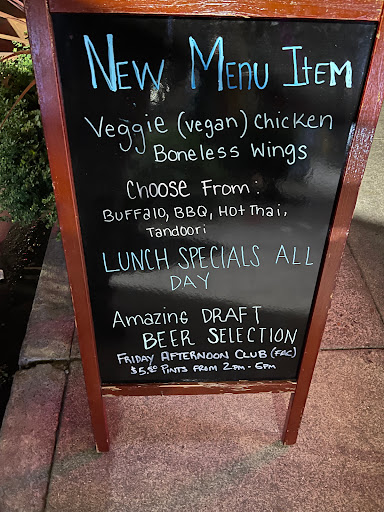 New Menu Item
Veggie (vegan) Chicken
Boneless Wings
Choose From:
Buffalo, BBQ, Hot Thai,
Tandoori
LUNCH SPECIALS ALL
DAY
Amazing DRAFT
BEER SELECTION
FRIDAY AFTERNOON CLUB (FAC)
PINTS FROM 2PM - 6PM